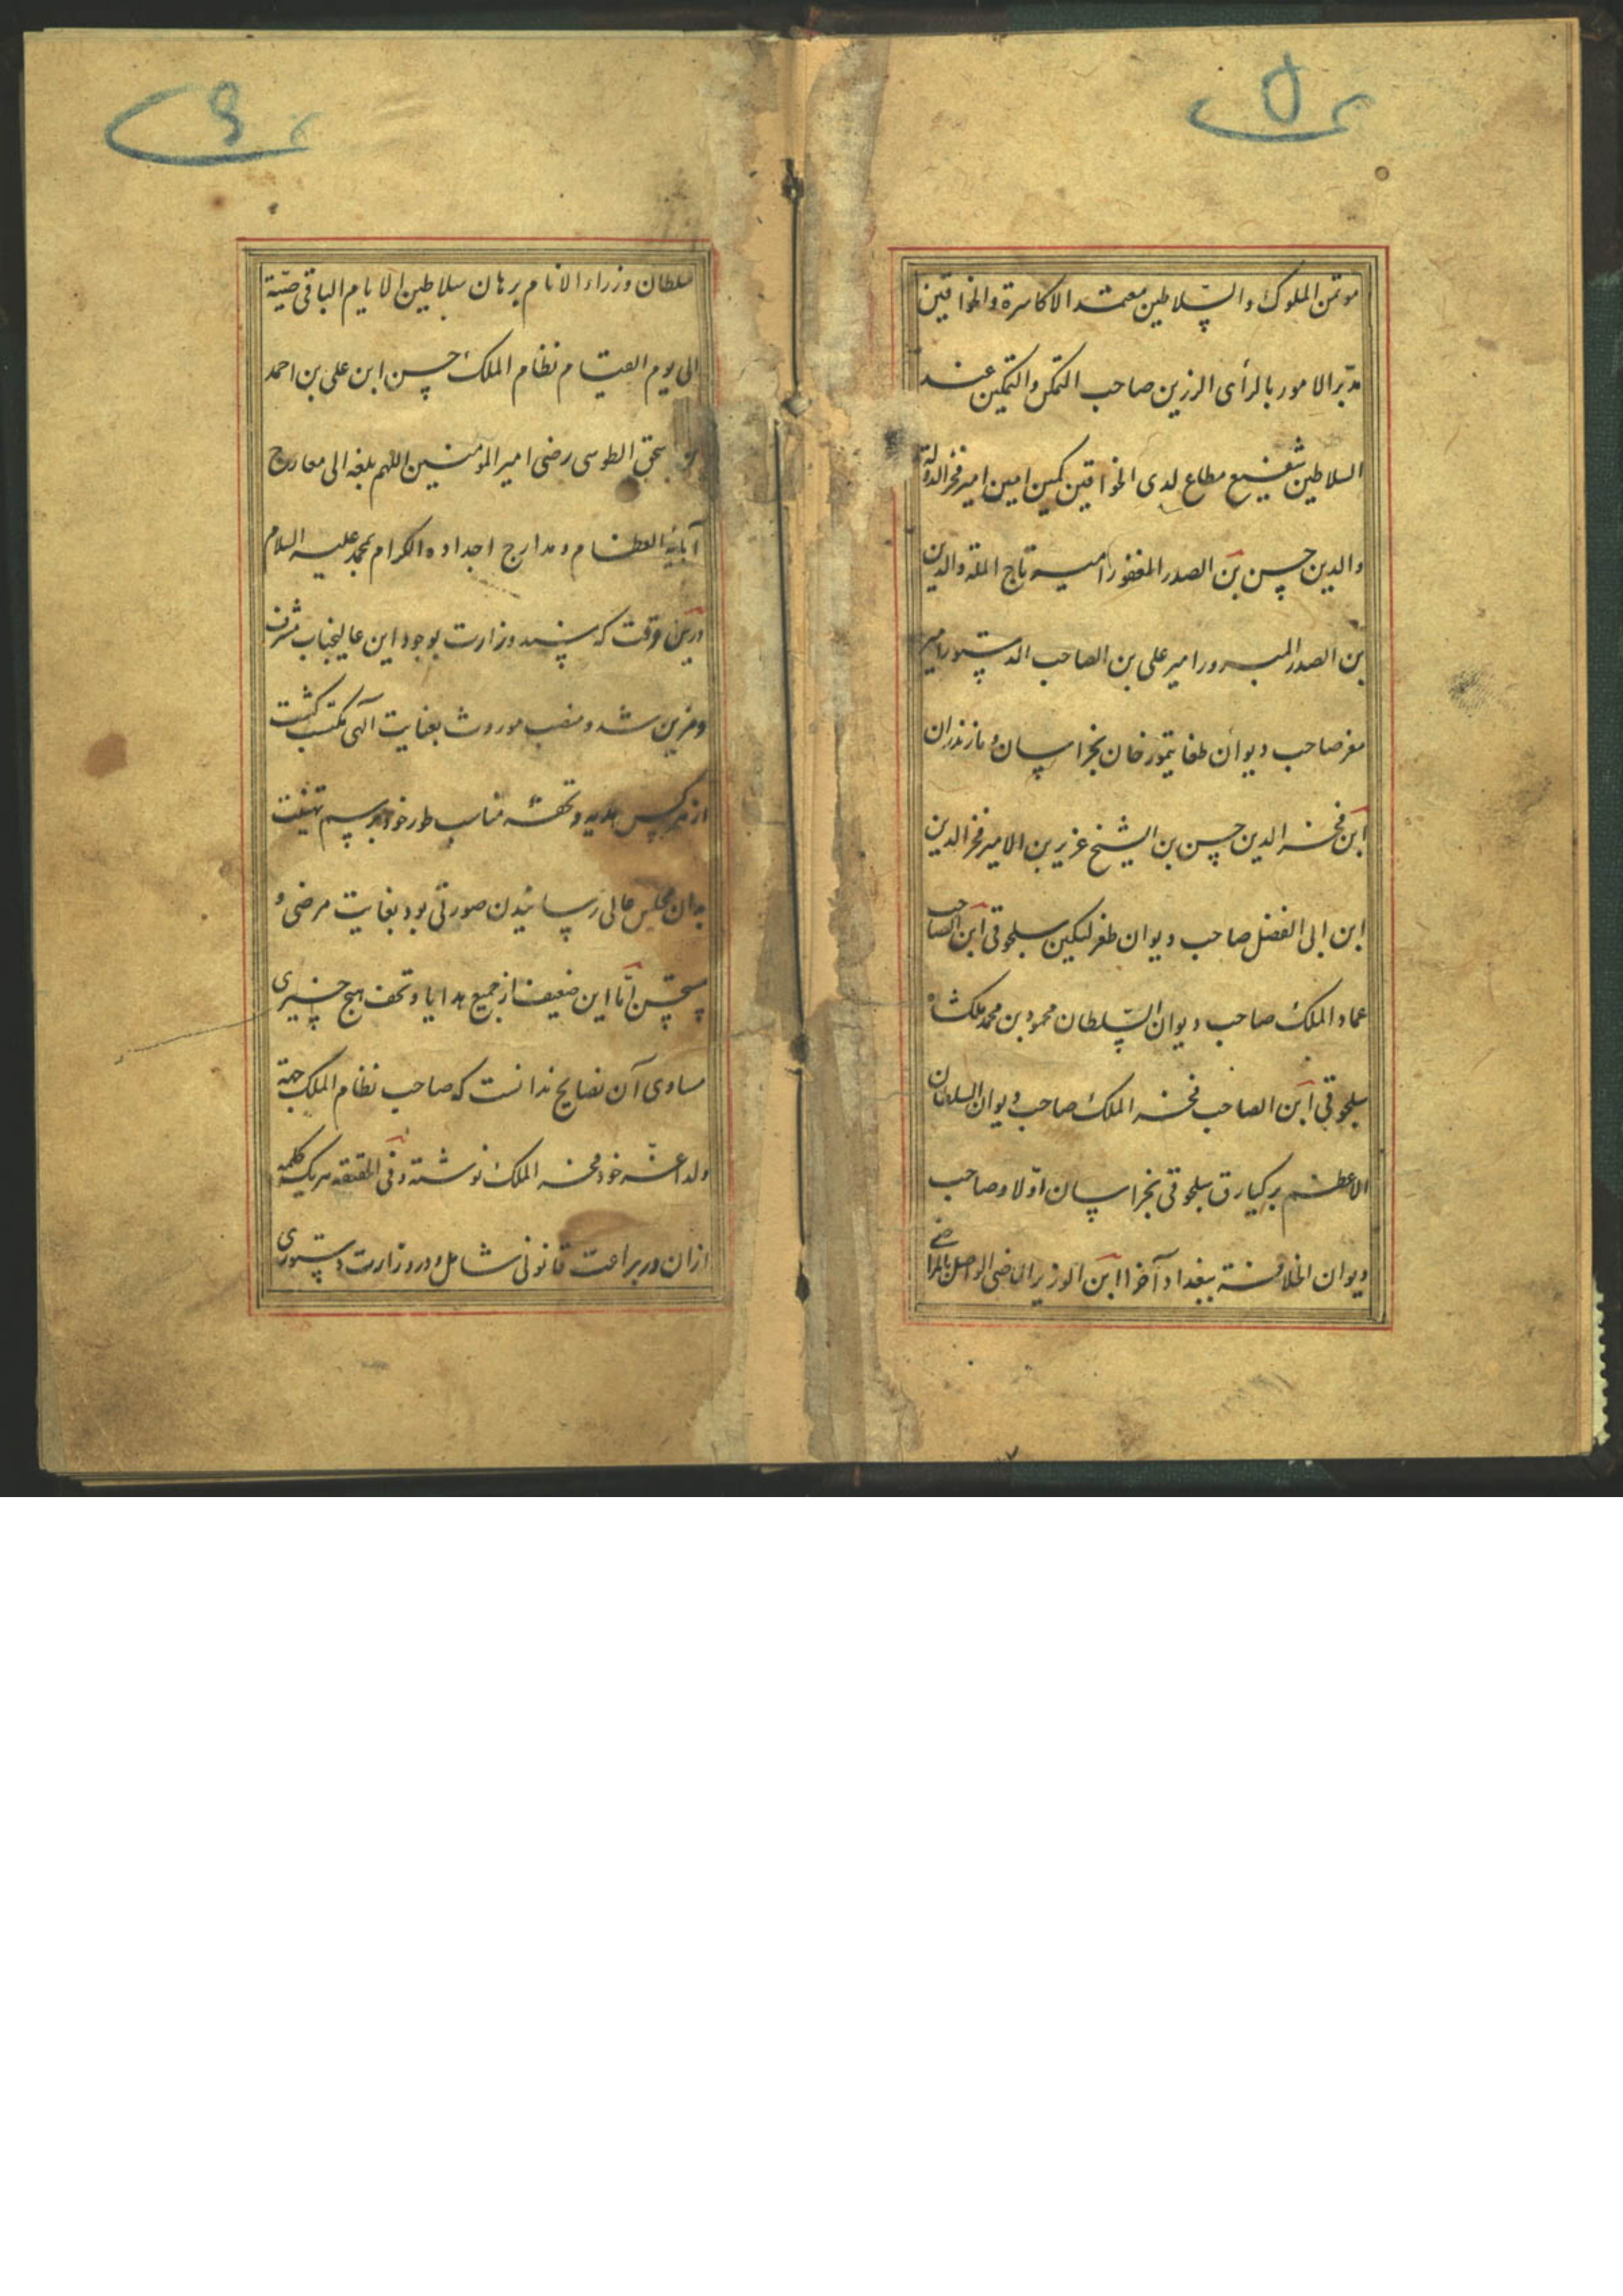 ص ۵
موتمن الملوک والسّلاطین معتمد الاکاسرة والخواقین
مدبّر الامور بالرأی الرزین صاحب التمکن والتمکین عند
السلاطین شفیع مطاع لدی الخواقین مکین امین امیر فخر الدولة
والدین حسن بن الصدر المغفور امیر تاج الملة والدین
بن الصدر المبرور امیر علی بن الصاحب الدستور امیر
معز صاحب دیوان طغایتمور خان بخراسان و مازندران
ابن فخر الدین حسن بن الشیخ عزیر بن الامیر فخر الدین
ابن ابی الفضل صاحب دیوان طغرلتکین سلجوقی ابن الصاحب
عماد الملک صاحب دیوان السّلطان محمود بن محمد ملکشاه
سلجوقی ابن الصاحب فخر الملک صاحب دیوان السلطان
الاعظم برکیارق سلجوقی بخراسان اوّلا و صاحب
دیوان الخلافة ببغداد آخرا ابن الوزیر الماضی الواصل بالمراضی
ص ۶
سلطان وزراء الانام برهان سلاطین الایام الباقی صیته
الی یوم القیام نظام الملک حسن ابن علی بن احمد
الطوسی رضی امیر المومنین اللهم بلغه الی معارج
آبائه العظام و مدارج اجداده الکرام بمحمد علیه السلام
درین وقت که مسند وزارت بوجود این عالیجناب مشرف
و مزین شد و منصب موروث بعنایت آلهی مکتسب گشت
از هر کس هدیه و تحفه مناسب طور خود برسم تهنیت
بدان مجلس عالی رسانیدن صورتی بود بغایت مرضی و
مستحسن امّا این ضعیف از جمیع هدایا و تحف هیچ چیزی
مساوی آن نصایح ندانست که صاحب نظام الملک جهة
ولد اعزّ خود فخر الملک نوشته و فی الحقیقه هر یک کلمه
ازان در براعت قانونی شامل و در وزارت دستوری